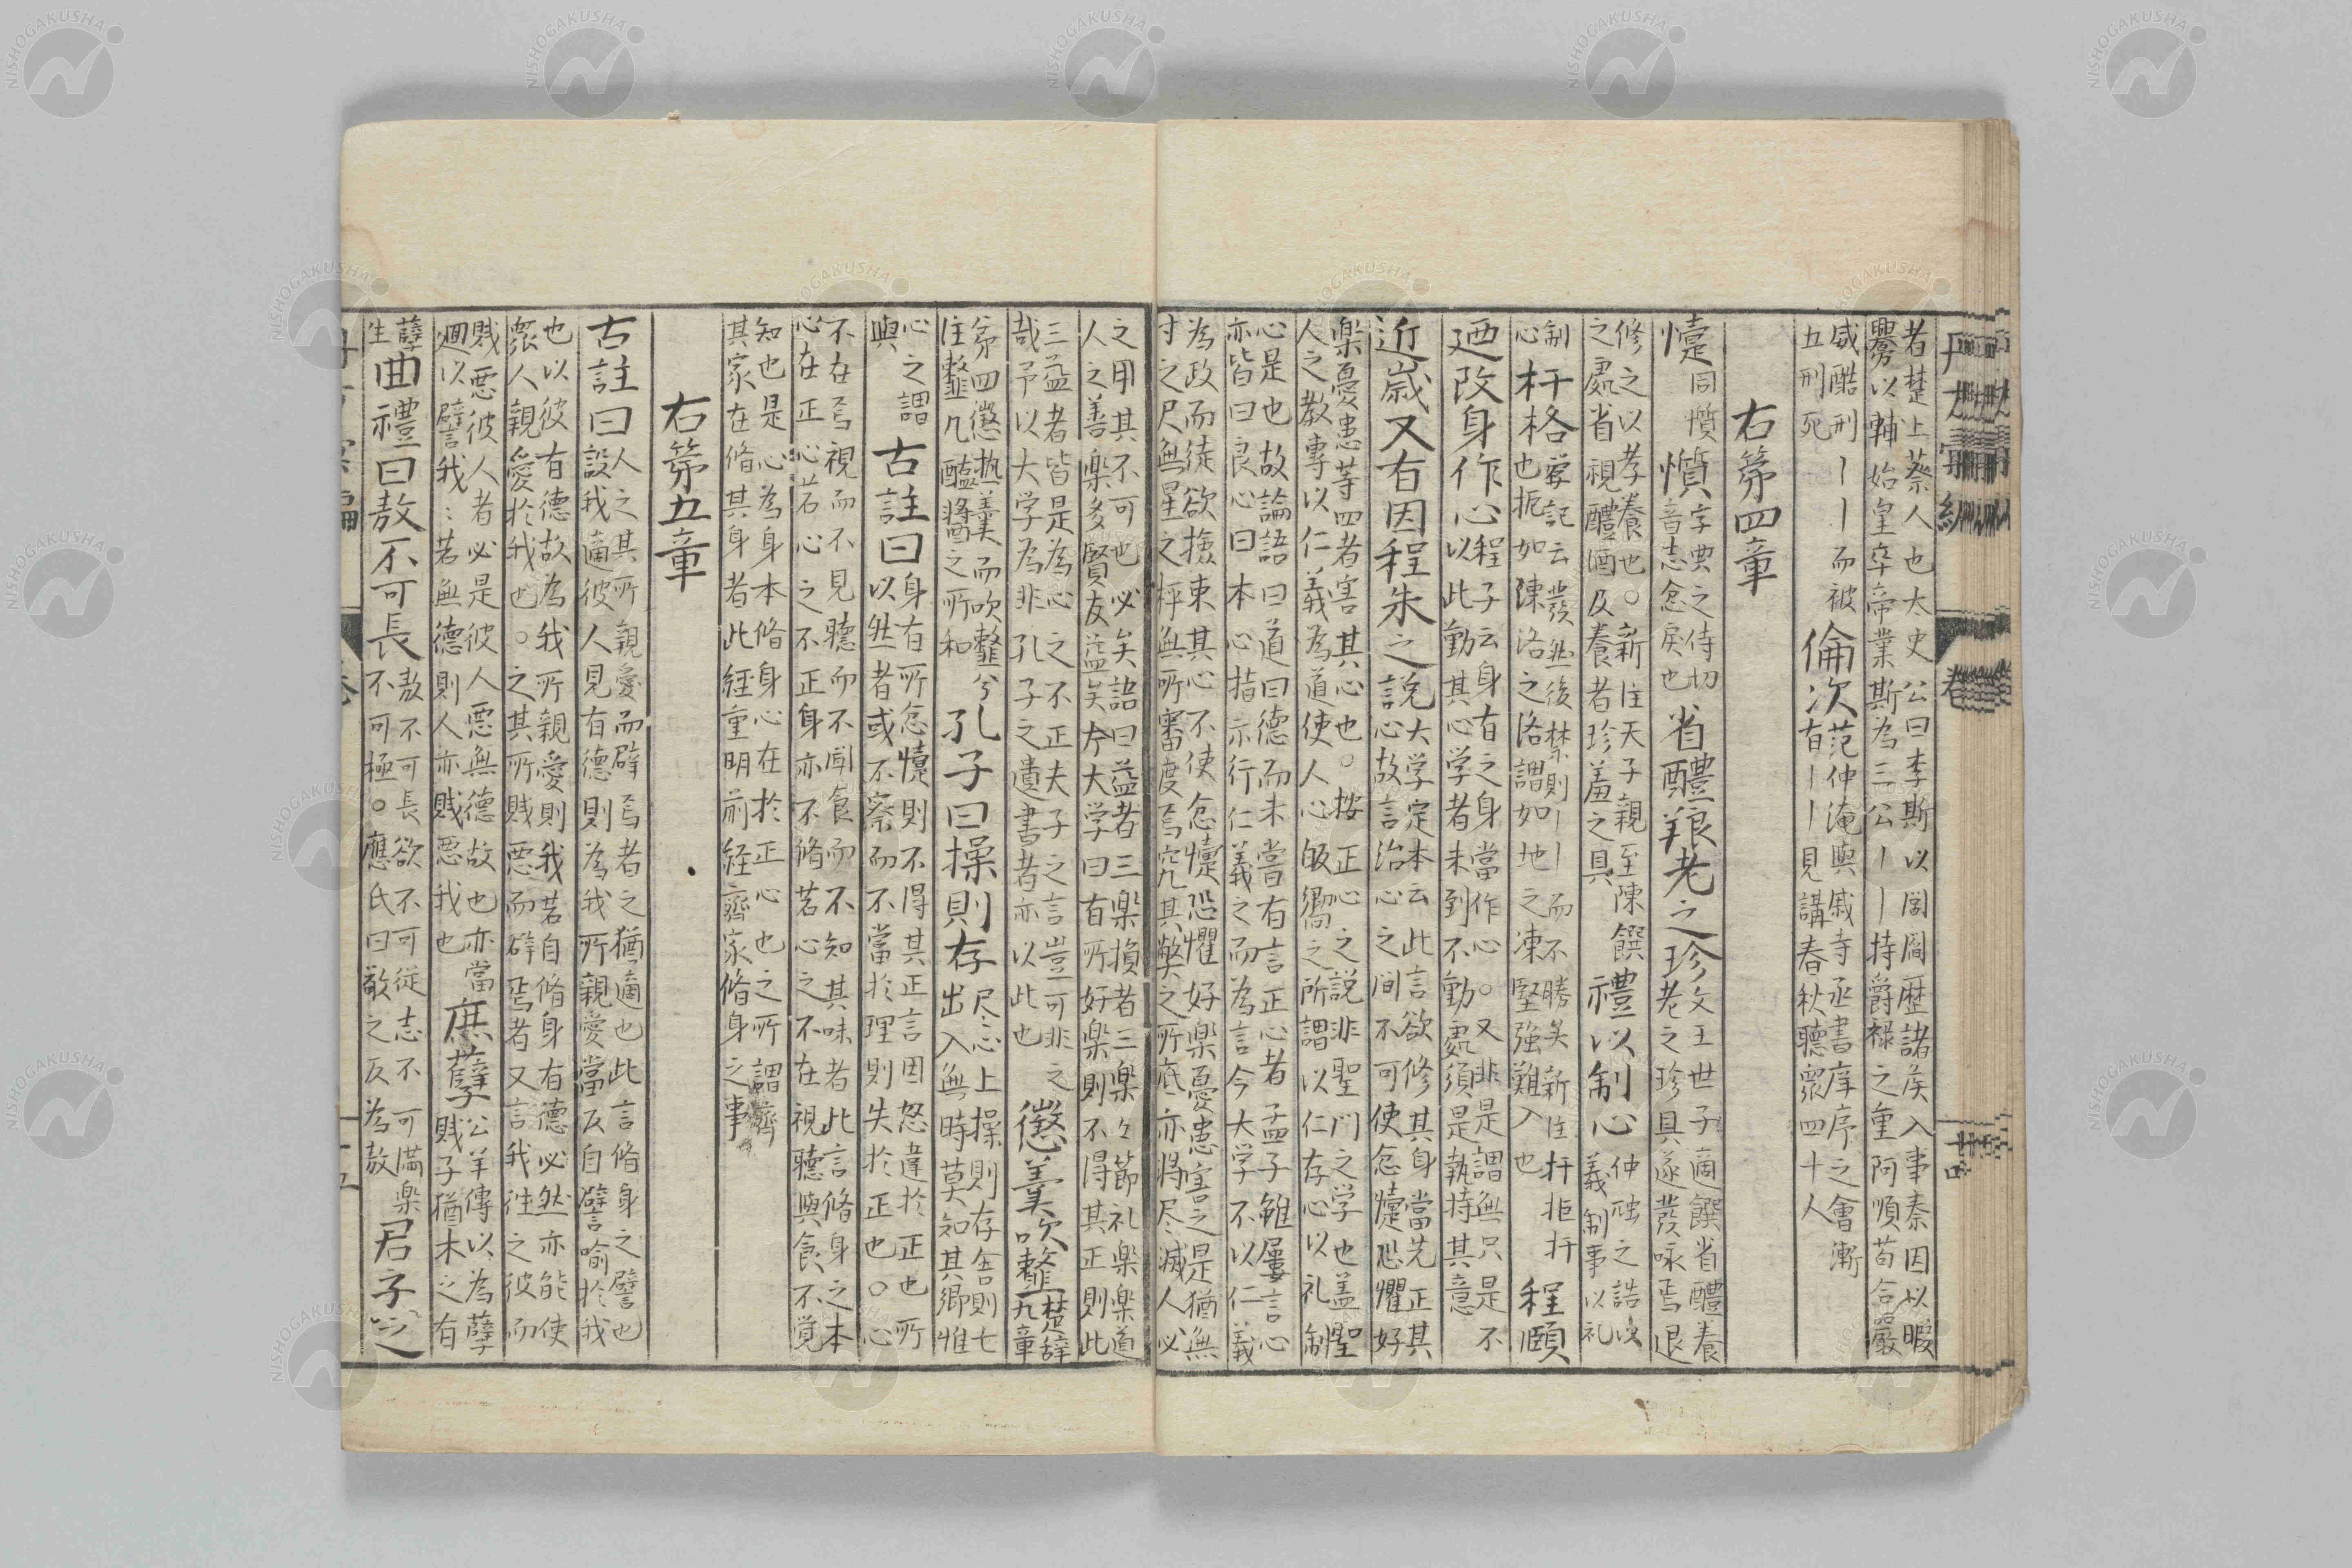 者楚上蔡人也大史公曰李斯以閭閻歴諸侯入事秦因以暇
釁以輔始皇卒帝業斯為三公丨丨持爵禄之重阿順苟合嚴
威酷刑丨丨丨而被倫次范仲淹與戚寺丞書庠序之會漸
五刑死有丨丨見講春秋聴衆四十人
右第四章
懥同懫懫字典之侍切音志忿戻也省醴羪老之珍文王世子適饌省醴養老之珍具遂發咏焉退
修之以孝養也○新注天子親至陳饌
之處省視醴酒及養者珍羞之具禮以制心仲虺之誥以義制事以礼
制心扞格学記云發然後禁則丨丨而不勝矣新注扞拒扞也扼如陳洛之洛謂如地之凍堅強難入也程頤
廼改身作心程子云身有之身當作心○又非是謂無只是不以此動其心学者未到不動處須是執持其意
近歳又有因程朱之説大学定本云此言欲修其身當先正其心故言治心之間不可使忿懥恐懼好
樂憂患等四者害其心也○按正心之説非聖門之学也盖聖
人之教專以仁義為道使人心皈嚮之所謂以仁存心以礼制
心是也故論語曰道曰德而未嘗有言正心者孟子雖屢言心
亦皆曰良心曰本心指示行仁義之而為言今大学不以仁義
為政而徒欲撿束其心不使忿懥恐懼好樂憂患害之是猶無
寸之尺無星之秤無所審度焉究其弊之所底亦将尽滅人必
之用其不可也必矣語曰益者三樂損者三樂々節礼樂樂道
人之善樂多賢友益矣今大学曰有所好樂則不得其正則此
三益者皆是為心之不正夫子之言豈可非之
哉予以大学為非孔子之遺書者亦以此也懲羹吹韲楚辞九章
第四懲热羹而吹韲兮
注韲凡醯醤之所和孔子曰操則存尽心上操則存舎則亡出入無時莫知其郷惟
心之謂與古註曰身有所忿懥則不得其正言因怒違於正也所以然者或不察而不當於理則失於正也○心
不在焉視而不見聴而不聞食而不知其味者此言脩身之本
心在正心若心之不正身亦不脩若心之不在視聴與食不覚
知也是心為身本脩身心在於正心也之所謂齊
其家在脩其身者此経重明前経齊家脩身之事
右第五章
古註曰人之其所親愛而辟焉者之猶適也此言脩身之譬也設我適彼人見有德則為我所親愛當反自譬喻於我
也以彼有德故為我所親愛則我若自脩身有德必然亦能使
衆人親愛於我也○之其所賎悪而辟焉者又言我往之彼而
賎悪彼人者必是彼人悪無德故也亦當
廻以譬我々若無德則人亦賎悪我也庶孽公羊傳以為孽賎子猶木之有
孽生曲禮曰敖不可長敖不可長欲不可従志不可満楽不可極○應氏曰敬之反為敖君子之